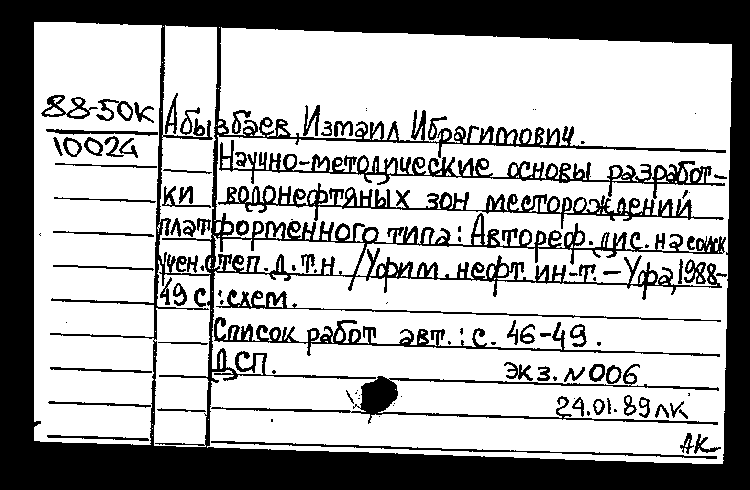 88-50К
10024
Абызбаев, Измаил Ибрагимович.
Научно-методические основы разработ-
ки водонефтяных зон месторождений
платформенного типа: Автореф. дис. на соиск
учен. степ. д.т.н. /Уфим. нефт. ин-т. – Уфа, 1988.-
49 с.: схем.
Список работ авт.: с. 46-49.
ДСП. экз. N 006.
24.01.89 ЛК
АК